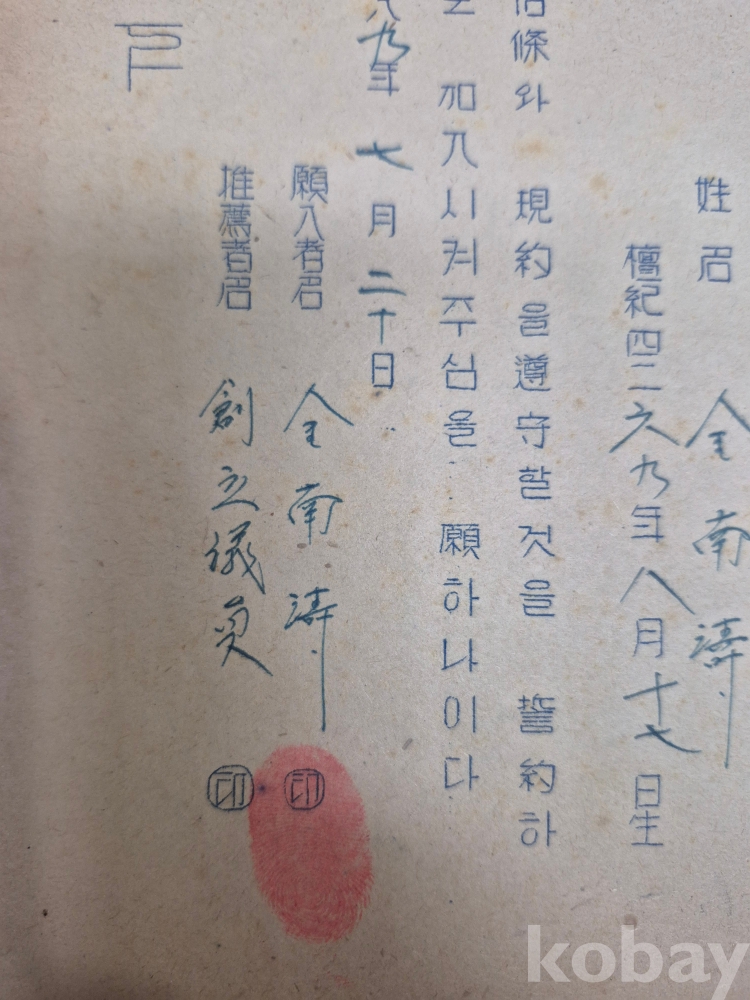 姓名 全南濤
檀紀四二六九年八月十七日生
信條와 現約을遵守할것을 誓約하
加入시켜주심을 願하나이다
八九年 七月二十日
願入者名 全南濤 印
推薦者名 創立議員 印
kobay